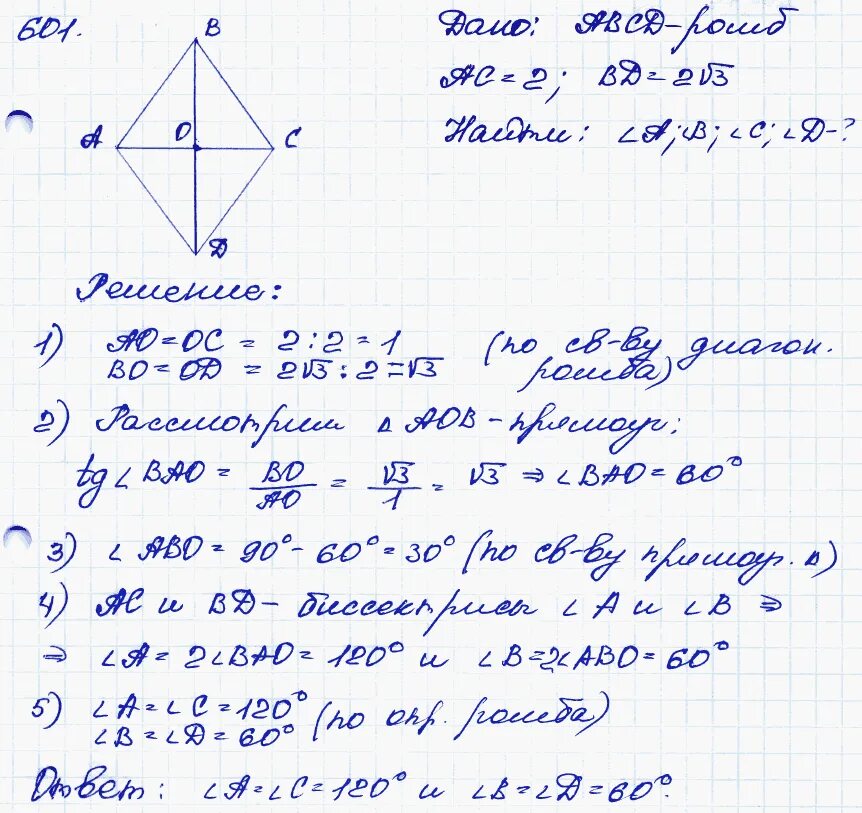 601.
B
A
O
C
D
Дано: ABCD-ромб
AC=2; BD=2√3
Найти: ∠A; ∠B; ∠C; ∠D-?
Решение:
1) AO=OC = 2:2=1 (по св-ву диагон.
BO=OD = 2√3:2=√3 ромба)
2) Рассмотрим △AOB-прямоуг:
tg∠BAO = BO/AO = √3/1 = √3 ⇒ ∠BAO=60°
3) ∠ABO=90°-60°=30° (по св-ву прямоуг. △)
4) AC и BD- биссектрисы ∠A и ∠B ⇒
⇒ ∠A=2∠BAO=120° и ∠B=2∠ABO=60°
5) ∠A=∠C=120° (по опр. ромба)
∠B=∠D=60°
Ответ: ∠A=∠C=120° и ∠B=∠D=60°.